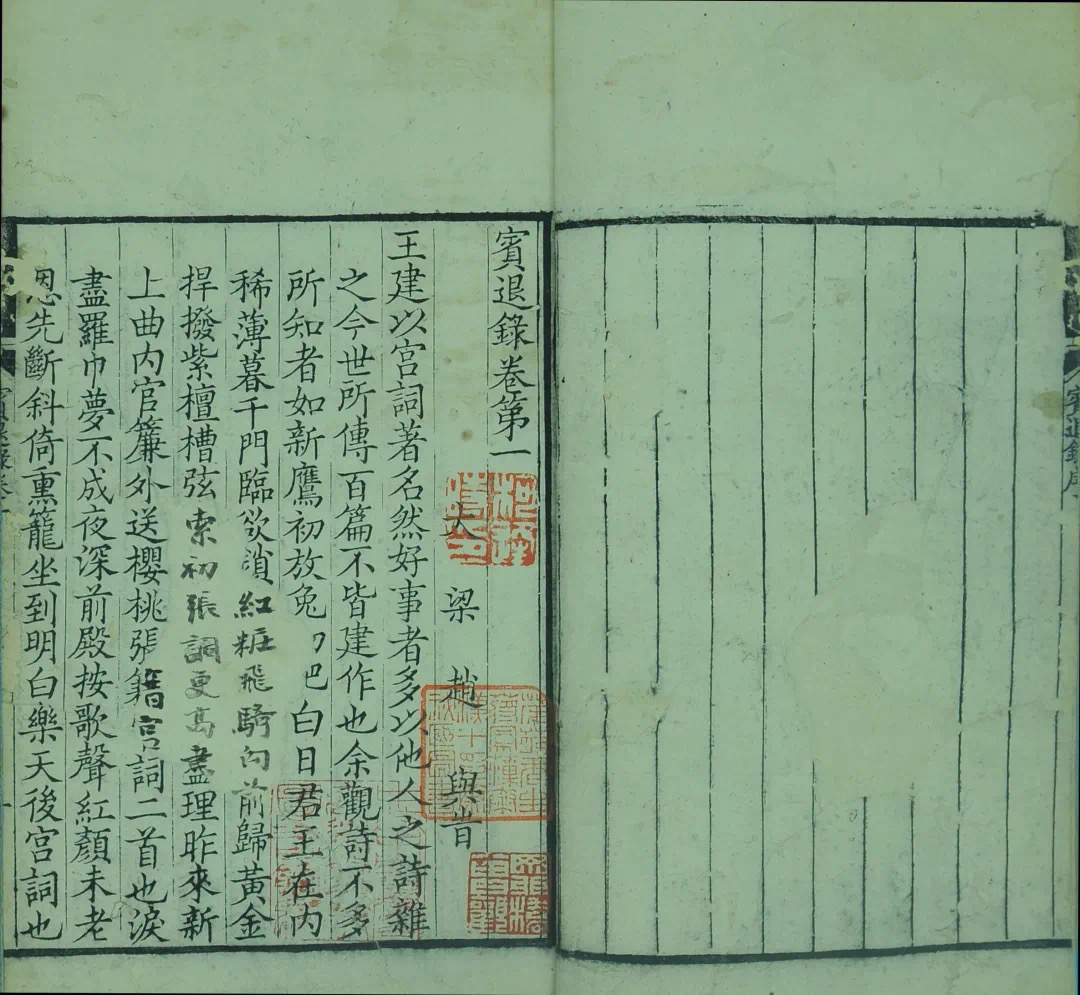 賓退錄卷第一
大梁趙與旹
王建以宮詞著名然好事者多以他人之詩雜
之今世所傳百篇不皆建作也余觀詩不多
所知者如新鷹初放兔白日君王在內
稀薄暮千門臨欲鎖紅粧飛騎向前歸黃金
捍撥紫檀槽弦索初張調更高盡理昨來新
上曲內官簾外送櫻桃張籍宮詞二首也淚
盡羅巾夢不成夜深前殿按歌聲紅顏未老
恩先斷斜倚熏籠坐到明白樂天後宮詞也
賓退錄序